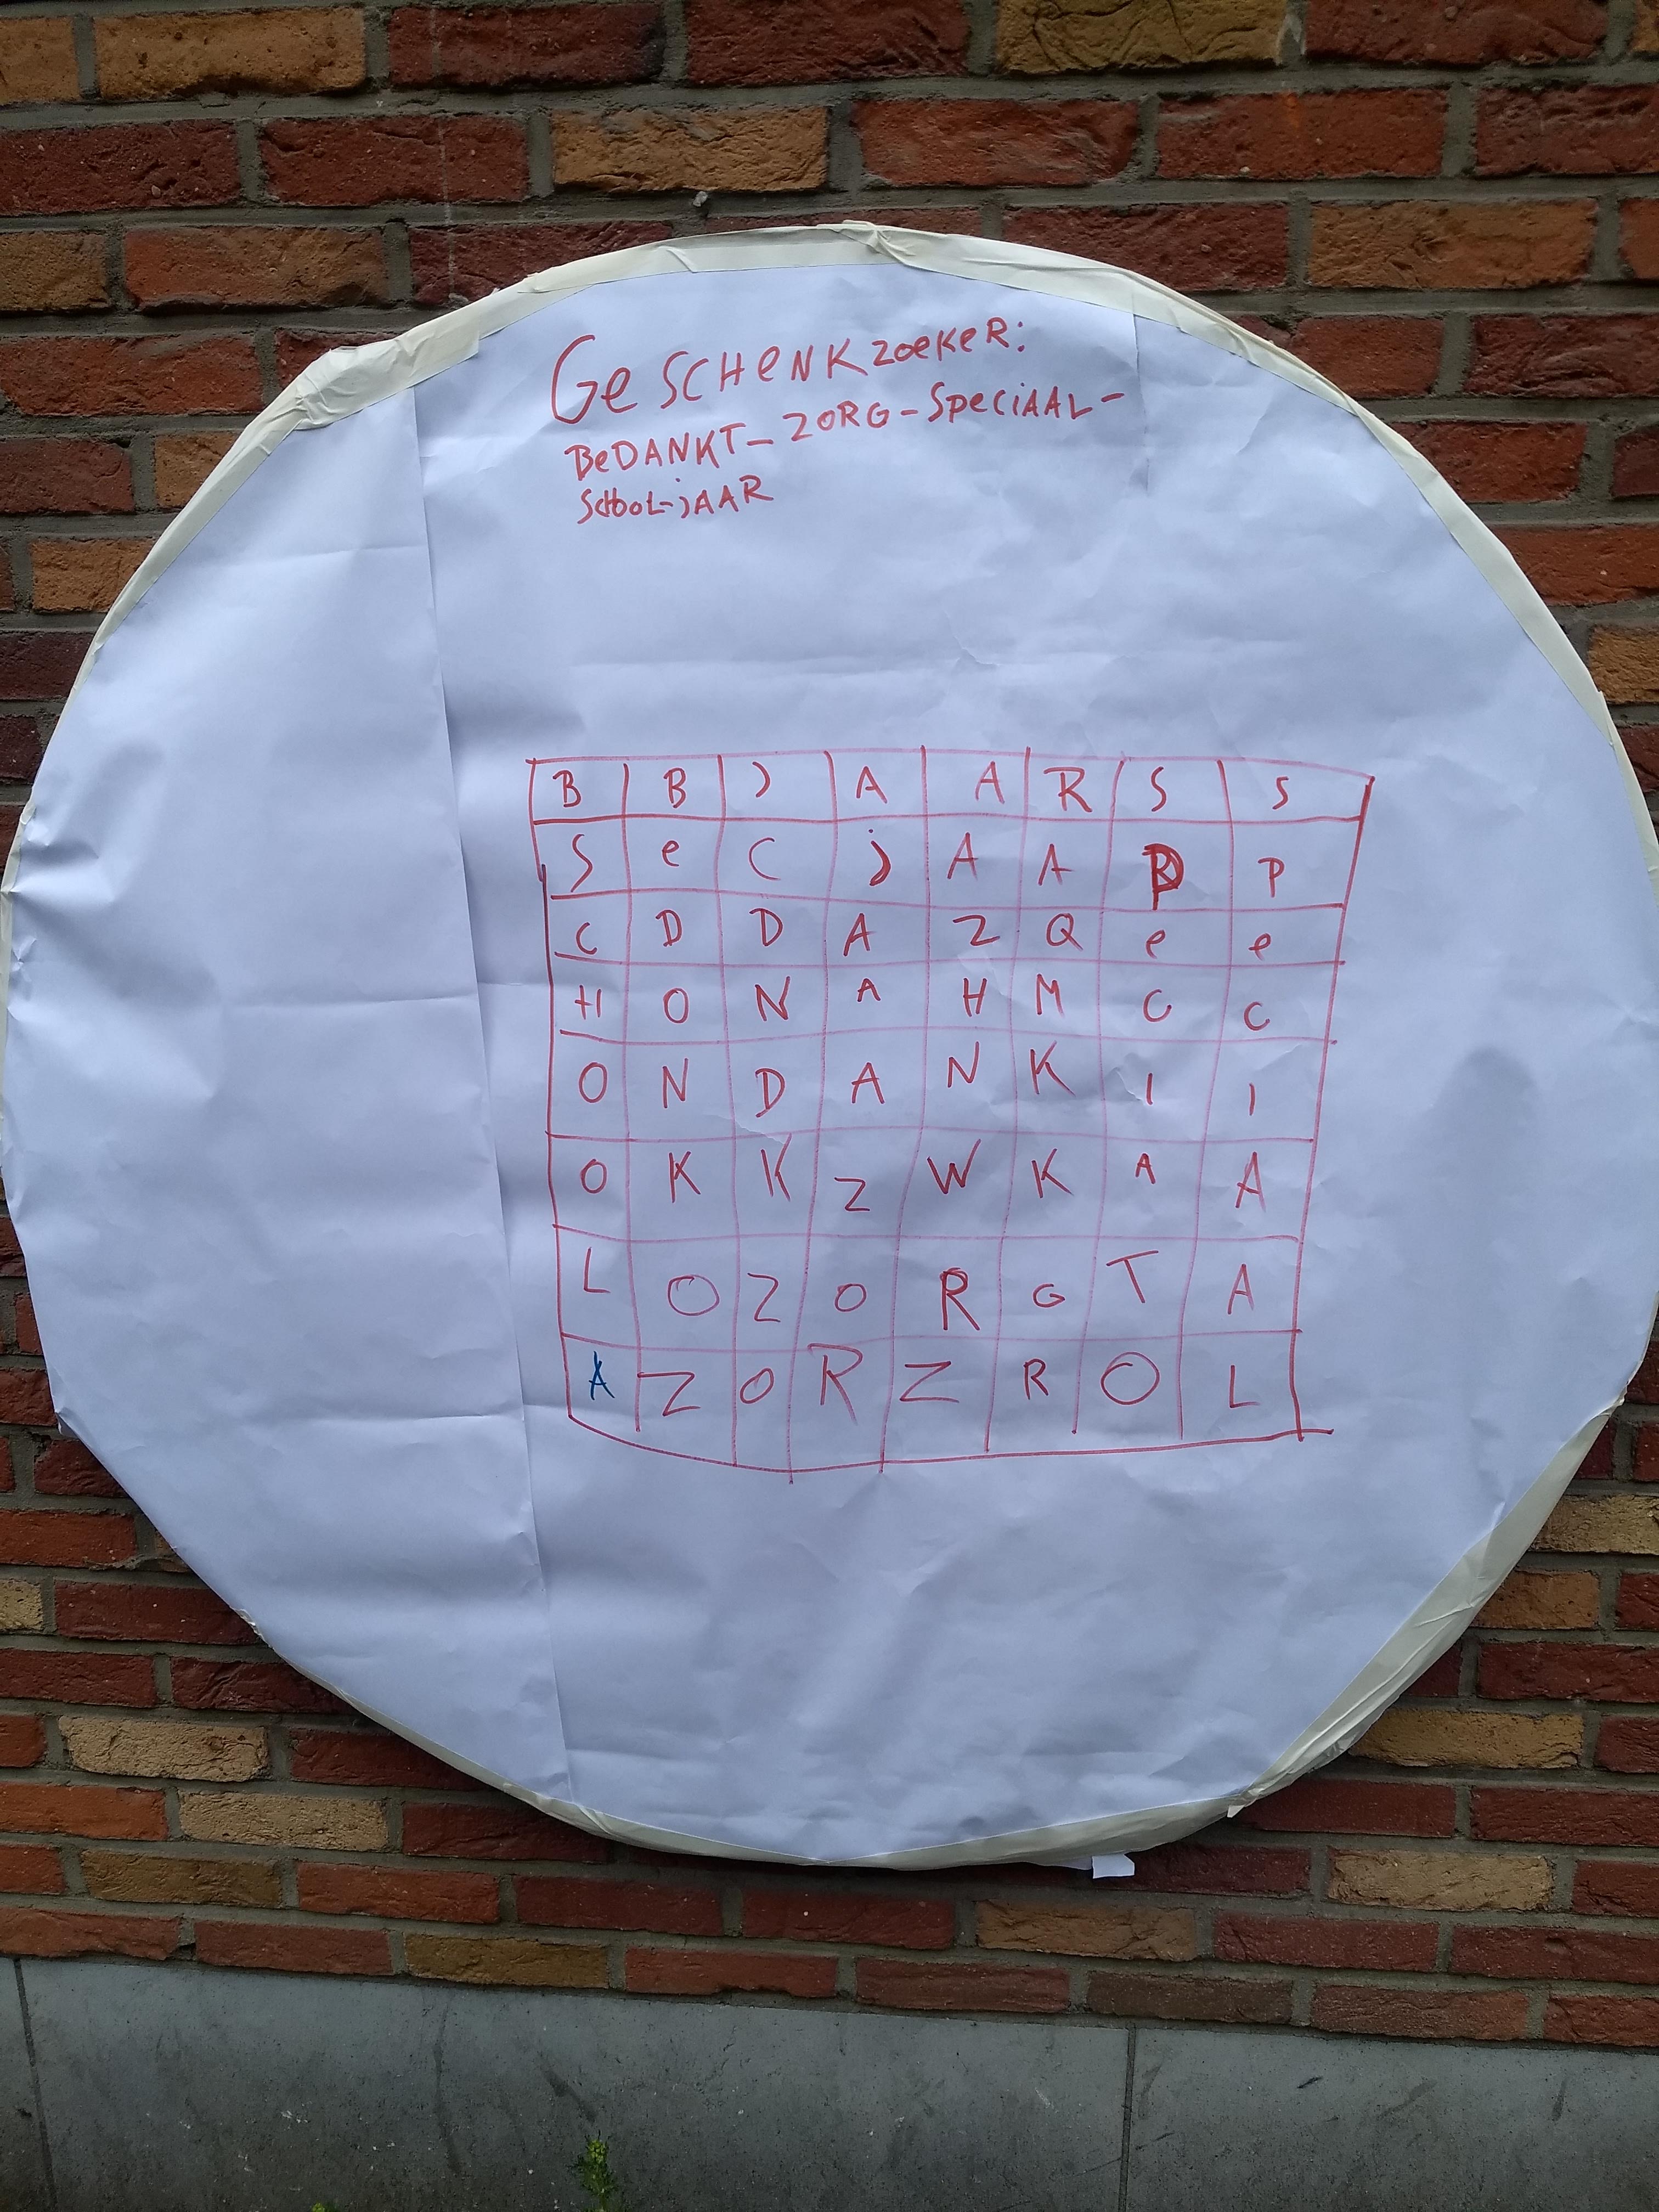 GeSCHeNKzoeKeR:
BeDANKT-ZORG-SpeciAAL-
SchooL-jAAR
B B J A A R S S
S e C j A A P P
C D D A Z Q e e
H O N A H M C C
O N D A N K I I
O K K Z W K A A
L O Z O R G T A
A Z O R Z R O L